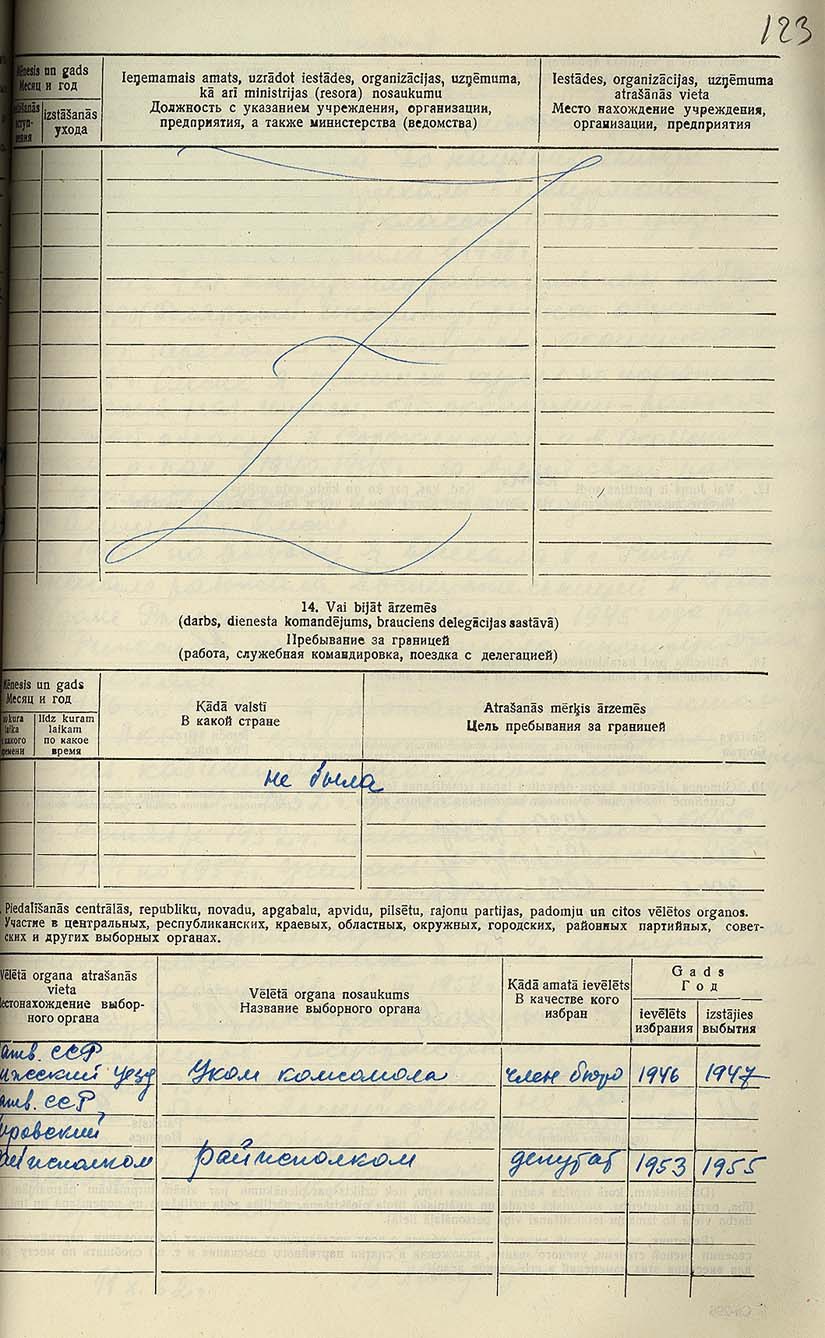 123
Mēnesis un gads
Месяц и год
izstāšanās
ухода
Ieņemamais amats, uzrādot iestādes, organizācijas, uzņēmuma,
kā arī ministrijas (resora) nosaukumu
Должность с указанием учреждения, организации,
предприятия, а также министерства (ведомства)
Iestādes, organizācijas, uzņēmuma
atrašanās vieta
Место нахождение учреждения,
организации, предприятия
14. Vai bijāt ārzemēs
(darbs, dienesta komandējums, brauciens delegācijas sastāvā)
Пребывание за границей
(работа, служебная командировка, поездка с делегацией)
Mēnesis un gads
Месяц и год
laika
līdz kuram
laikam
по какое
время
Kādā valstī
В какой стране
Atrašanās mērķis ārzemēs
Цель пребывания за границей
не была
Piedalīšanās centrālās, republiku, novadu, apgabalu, apvidu, pilsētu, rajonu partijas, padomju un citos vēlētos organos.
Участие в центральных, республиканских, краевых, областных, окружных, городских, районных партийных, совет-
ских и других выборных органах.
Vēlētā organa atrašanās
vieta
естонахождение выбор-
ного органа
Vēlētā organa nosaukums
Название выборного органа
Kādā amatā ievēlēts
В качестве кого
избран
Gads
Год
ievēlēts
избрания
izstājies
выбытия
атв. ССР
уезд Уком комсомола член бюро 1946 1947
атв. ССР,
ровский
исполком райисполком депутат 1953 1955